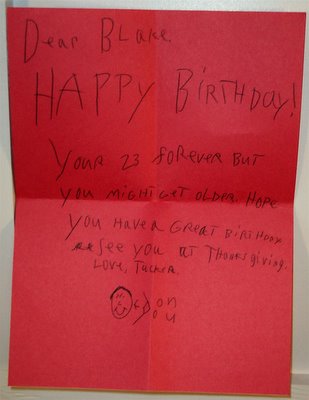 Dear Blake
HAPPY BirTHDay!
Your 23 forever But
you might get older. Hope
you have a great Birthday
see you at Thanksgiving.
Love, Tucker.
on
you